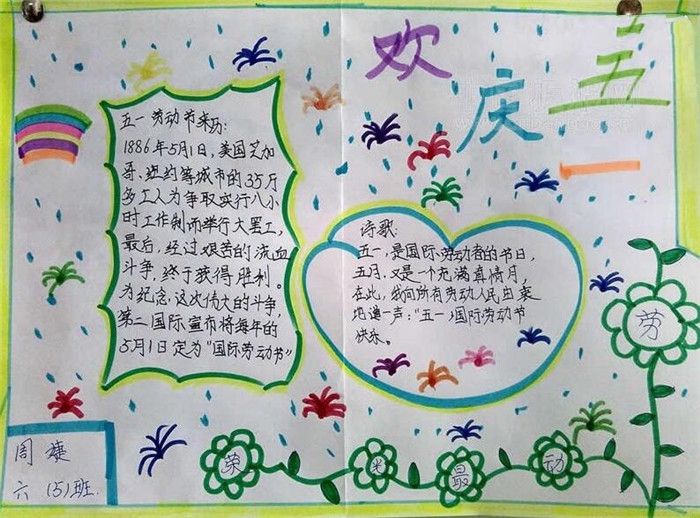 欢庆五一
五一劳动节来历:
1886年5月1日,美国芝加
哥、纽约等城市的35万
多工人为争取实行八小
时工作制而举行大罢工,
最后,经过艰苦的流血
斗争,终于获得胜利。
为纪念这次伟大的斗争,
第二国际宣布将每年的
5月1日定为“国际劳动节”
诗歌:
五一,是国际劳动者的节日,
五月,又是一个充满真情月,
在此,我向所有劳动人民由衷
地道一声:“五一”国际劳动节
快乐。
劳
动
最
光
荣
周婕
六(5)班